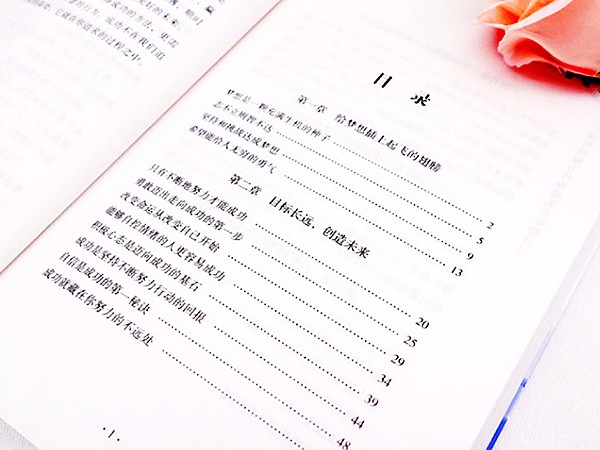 美好的未来。
遇，顺时
成功的方法，更需
成功不在我们追
它就在你追求的过程之中。
目 录
第一章 给梦想插上起飞的翅膀
梦想是一颗充满生机的种子 ………… 2
志不立则智不达 ………… 5
坚持和挑战达成梦想 ………… 9
希望能给人无穷的勇气 ………… 13
第二章 目标长远，创造未来
只有不断地努力才能成功 ………… 20
勇敢迈出走向成功的第一步 ………… 25
改变命运从改变自己开始 ………… 29
能够自控情绪的人更容易成功 ………… 34
积极心态是迈向成功的基石 ………… 39
成功是坚持不断努力行动的回报 ………… 44
自信是成功的第一秘诀 ………… 48
成功就藏在你努力的不远处 …………
· 1 ·